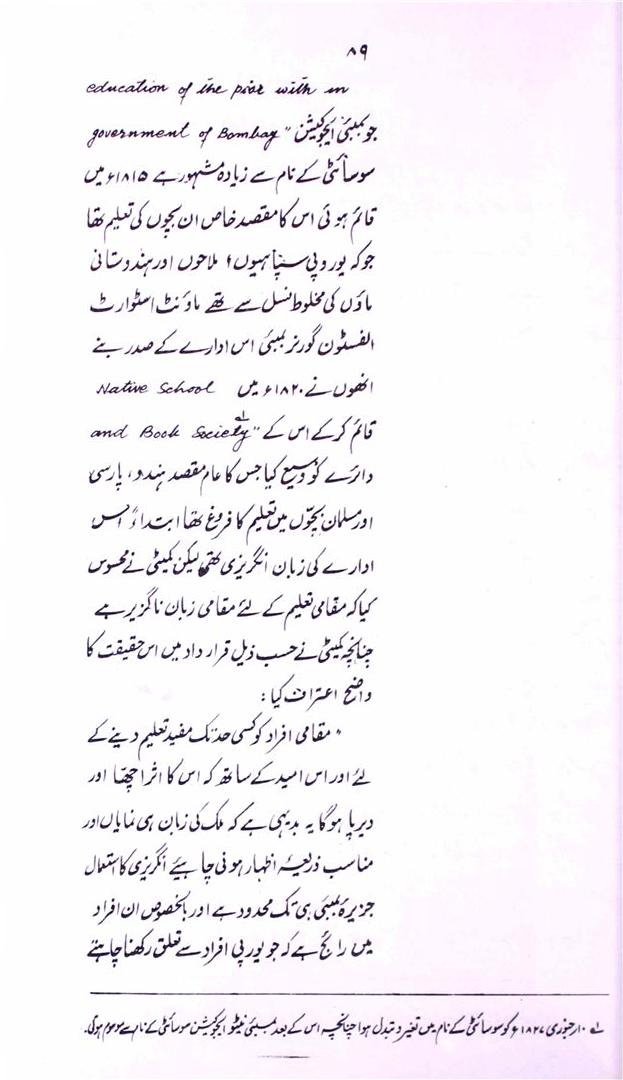 ۸۹
education of the poor with in
government of Bombay" جو بمبئی ایجوکیشن
سوسائٹی کے نام سے زیادہ مشہور ہے ۱۸۱۵ء میں
قائم ہوئی اس کا مقصد خاص ان بچوں کی تعلیم تھا
جو کہ یوروپی سپاہیوں، ملاحوں اور ہندوستانی
ماؤں کی مخلوط نسل سے تھے ماؤنٹ اسٹوارٹ
الفسٹون گورنر بمبئی اس ادارے کے صدر بنے
انھوں نے ۱۸۲۰ء میں Native School
and Book Society" لے قائم کر کے اس کے
دائرے کو وسیع کیا جس کا عام مقصد ہندو، پارسی
اور مسلمان بچّوں میں تعلیم کا فروغ تھا ابتداءً اس
ادارے کی زبان انگریزی تھی لیکن کمیٹی نے محسوس
کیا کہ مقامی تعلیم کے لئے مقامی زبان ناگزیر ہے
چنانچہ کمیٹی نے حسب ذیل قرار داد میں اس حقیقت کا
واضح اعتراف کیا:
" مقامی افراد کو کسی حد تک مفید تعلیم دینے کے
لئے اور اس امید کے ساتھ کہ اس کا اثر اچھّا اور
دیرپا ہوگا یہ بدیہی ہے کہ ملک کی زبان ہی نمایاں اور
مناسب ذریعۂ اظہار ہونی چاہیئے انگریزی کا استعمال
جزیرۂ بمبئی ہی تک محدود ہے اور بالخصوص ان افراد
میں رائج ہے کہ جو یورپی افراد سے تعلق رکھنا چاہتے
لے ۱۰ار جنوری ۱۸۲۷ء کو سوسائٹی کے نام میں تغیر و تبدل ہوا چنانچہ اس کے بعد بمبئی نیٹو ایجوکیشن سوسائٹی کے نام سے موسوم ہوئی۔